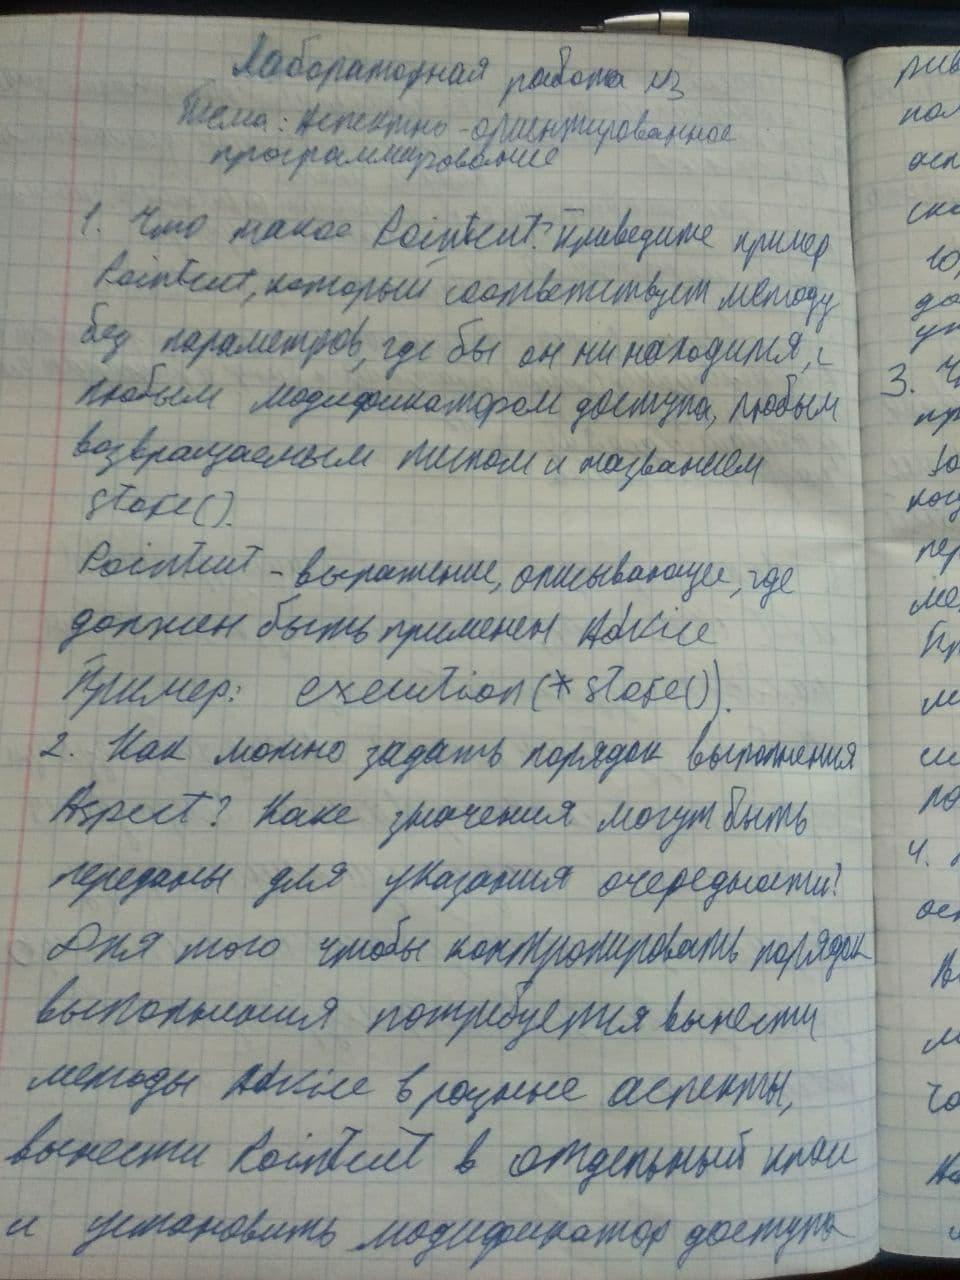 Лабораторная работа №3
Тема: Аспектно-ориентированное
программирование
1. Что такое Pointcut? Приведите пример
Pointcut, который соответствует методу
без параметров, где бы он ни находился, с
любым модификатором доступа, любым
возвращаемым типом и названием
store().
Pointcut - выражение, описывающее, где
должен быть применен Advice
Пример: execution(* store()).
2. Как можно задать порядок выполнения
Aspect? Каке значения могут быть
переданы для указания очередности?
Для того чтобы контролировать порядок
выполнения потребуется вынести
методы Advice в разные аспекты,
вынести Pointcut в отдельный клас
и установить модификатор доступа
3.
4.